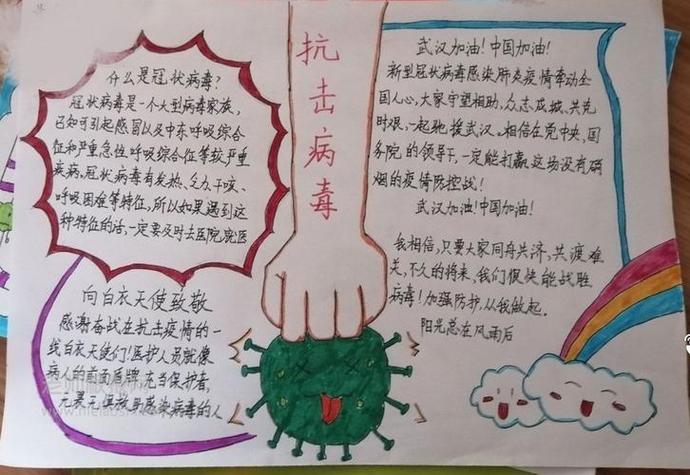 什么是冠状病毒?
冠状病毒是一个大型病毒家族,
已知可引起感冒以及中东呼吸综合
征和严重急性呼吸综合征等较严重
疾病,冠状病毒有发热、乏力、干咳、
呼吸困难等特征,所以如果遇到这
种特征的话,一定要及时去医院就医
向白衣天使致敬
感谢奋战在抗击疫情的一
线白衣天使们!医护人员就像
病人的前面盾牌,充当保护者,
救助感染病毒的人
抗击病毒
武汉加油!中国加油!
新型冠状病毒感染肺炎疫情牵动全
国人心,大家守望相助,众志成城、共克
时艰,一起驰援武汉。相信在党中央、国
务院的领导下,一定能打赢这场没有硝
烟的疫情防控战!
武汉加油!中国加油!
我相信,只要大家同舟共济,共渡难
关,不久的将来,我们很快能战胜
病毒!加强防护,从我做起。
阳光总在风雨后